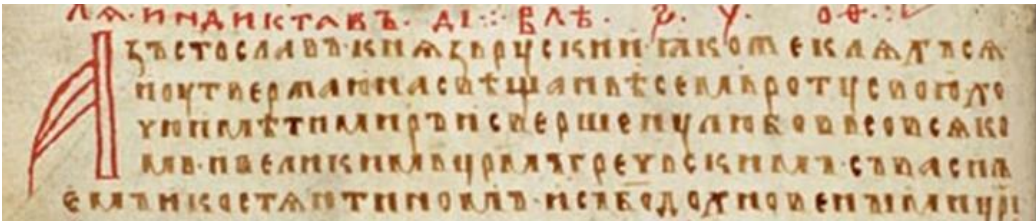 лѧ. индиктавъ. ді ⁘ влѣ. ҂ѕ. у. оѳ ⁘
Азъстославъ·кнѧзьрускии·ꙗкожеклѧхъсѧ
поутвержаюнасвѣщаньѣсемьротусвоюхо
чюимѣтимиръисвершенулюбовьсовсѧко
мь·ивеликимьцрмьгречьскимъ·съвасил
емъикостѧнтиномъ·исьбодохновенымицри